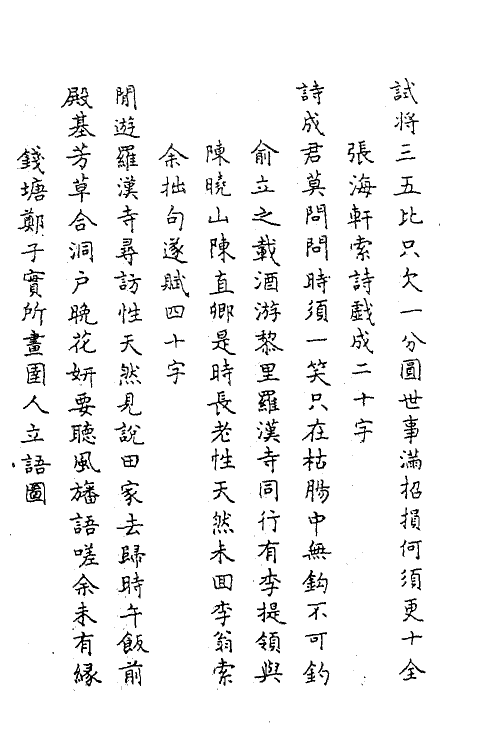 試將三五比只欠一分圓世事滿招損何須更十全
張海軒索詩戲成二十字
詩成君莫問問時須一笑只在枯腸中無鈎不可釣
俞立之載酒游黎里羅漢寺同行有李提領與
陳曉山陳直卿是時長老性天然未回李翁索
余拙句遂賦四十字
閒遊羅漢寺尋訪性天然見說田家去歸時午飯前
殿基芳草合洞戸晚花妍要聽風旛語嗟余未有緣
錢塘鄭子實所畫圉人立語圖